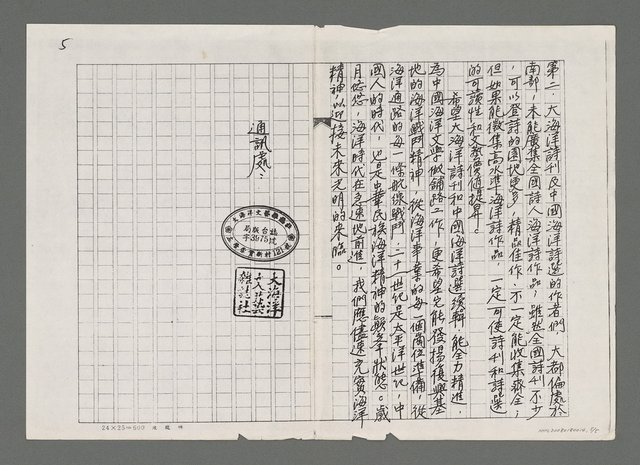 5
第二，大海洋詩刊及中國海洋詩選的作者們，大都偏處於
南部，未能廣集全國詩人海洋詩作品，雖然全國詩刊不少
，可以登詩的園地更多，精品佳作，不一定能收集齊全；
但如果能徵集高水準海洋詩作品，一定可使詩刊和詩選
的可讀性和文藝價值提昇。
希望大海洋詩刊和中國海洋詩選續輯，能全力精進，
為中國海洋文學做舖路工作，更希望它能發揚復興基
地的海洋戰鬥精神，從海洋事業的每一個崗位準備，從
海洋通路的每一條航線戰鬥，二十一世紀是太平洋世紀，中
國人的時代，也是中華民族海洋精神的顛峯狀態。歲
月悠悠，海洋時代在急速地前進，我們應儘速充實海洋
精神，以迎接未來光明的來臨。
通訊處：
大海洋
文藝
雜誌社
24×25=600